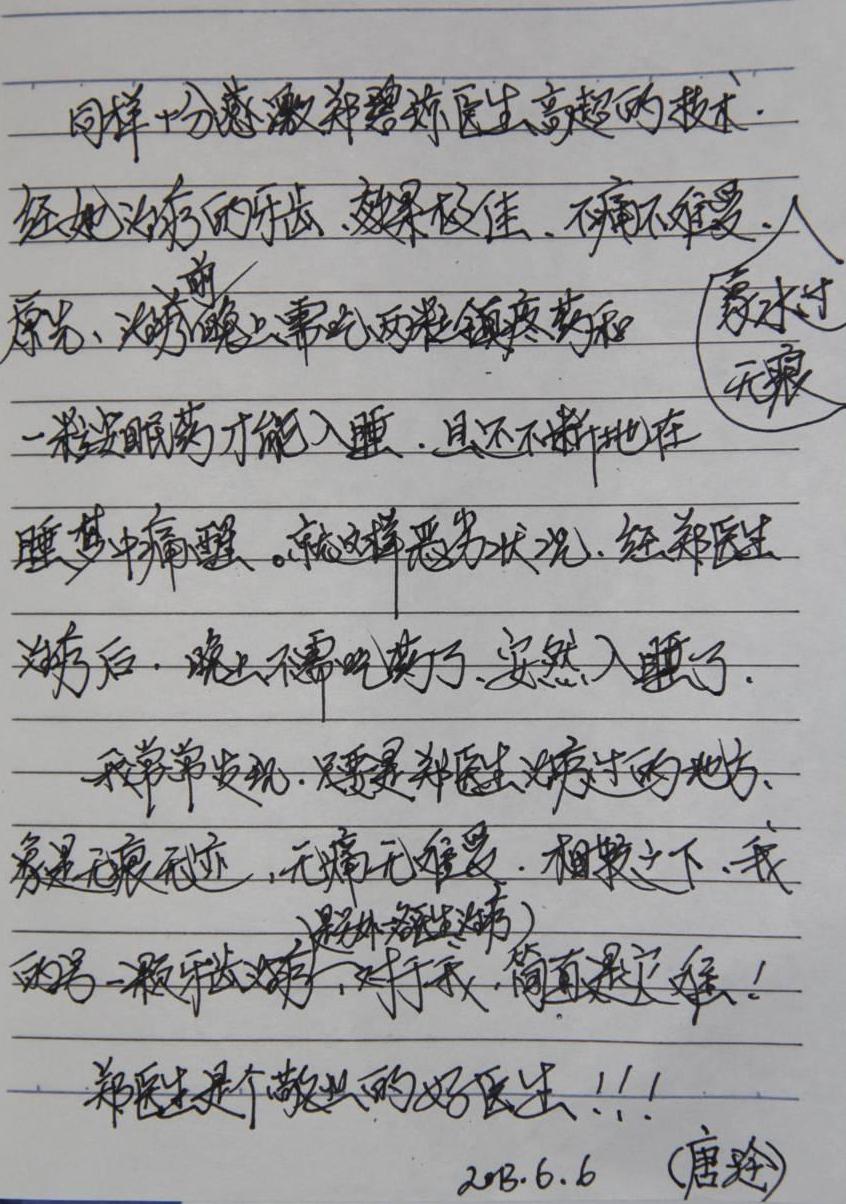 同样十分感激郑碧琼医生高超的技术.
经她治疗的牙齿、效果极佳、不痛不难受、
象水过
无痕
前
原先、治疗晚上需吃两粒镇疼药和
一粒安眠药才能入睡.且还不断地在
睡梦中痛醒。就这样恶劣状况、经郑医生
治疗后.晚上不需吃药了、安然入睡了.
我常常发现.只要是郑医生治疗过的地方、
象是无痕无迹,无痛无难受.相较之下、我
(是另外一名医生治疗)
的另一颗牙齿治疗、对于我,简直是灾难!
郑医生是个敬业的好医生!!!
2013.6.6 (唐